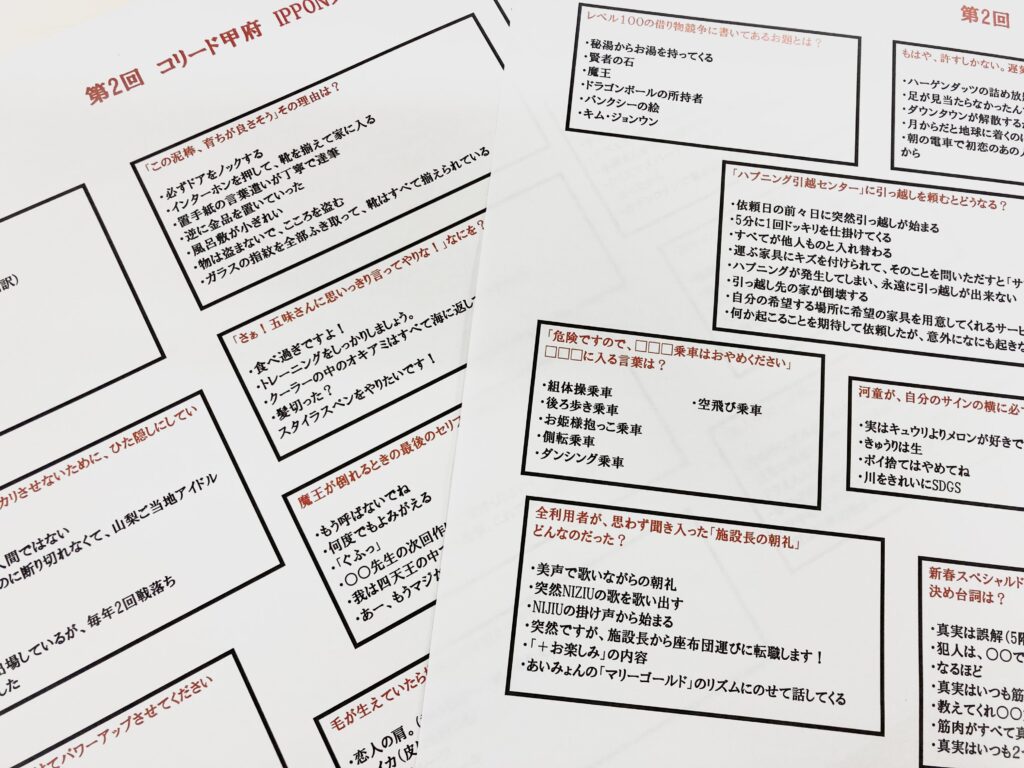 第2回 コリード甲府 IPPON
「この泥棒、育ちが良さそう」その理由は？
・必ずドアをノックする
・インターホンを押して、靴を揃えて家に入る
・置手紙の言葉遣いが丁寧で達筆
・逆に金品を置いていった
・風呂敷が小ぎれい
・物は盗まないで、こころを盗む
・ガラスの指紋を全部ふき取って、靴はすべて揃えられている
訳）
「さぁ！五味さんに思いっきり言ってやりな！」なにを？
・食べ過ぎですよ！
・トレーニングをしっかりしましょう。
・クーラーの中のオキアミはすべて海に返して
・髪切った？
スタイラスペンをやりたいです！
カリさせないために、ひた隠しにしてい
人間ではない
のに断り切れなくて、山梨ご当地アイドル
出場しているが、毎年2回戦落ち
した
魔王が倒れるときの最後のセリフ
・もう呼ばないでね
・何度でもよみがえる
・「ぐふっ」
・〇〇先生の次回作に
・我は四天王の中で
・あー、もうマジか
けてパワーアップさせてください
毛が生えていたら
・恋人の肩。
イカ（皮
第2回
レベル100の借り物競争に書いてあるお題とは？
・秘湯からお湯を持ってくる
・賢者の石
・魔王
・ドラゴンボールの所持者
・バンクシーの絵
・キム・ジョンウン
もはや、許すしかない。遅刻
・ハーゲンダッツの詰め放題
・足が見当たらなかったん
・ダウンタウンが解散する
・月からだと地球に着くの
・朝の電車で初恋のあの人
から
「ハプニング引越センター」に引っ越しを頼むとどうなる？
・依頼日の前々日に突然引っ越しが始まる
・5分に1回ドッキリを仕掛けてくる
・すべてが他人ものと入れ替わる
・運ぶ家具にキズを付けられて、そのことを問いただすと「サ
・ハプニングが発生してしまい、永遠に引っ越しが出来ない
・引っ越し先の家が倒壊する
・自分の希望する場所に希望の家具を用意してくれるサービ
・何か起こることを期待して依頼したが、意外になにも起きな
「危険ですので、□□□乗車はおやめください」
□□□に入る言葉は？
・組体操乗車 ・空飛び乗車
・後ろ歩き乗車
・お姫様抱っこ乗車
・側転乗車
・ダンシング乗車
河童が、自分のサインの横に必ず
・実はキュウリよりメロンが好きで
・きゅうりは生
・ポイ捨てはやめてね
・川をきれいにSDGS
全利用者が、思わず聞き入った「施設長の朝礼」
どんなのだった？
・美声で歌いながらの朝礼
・突然NIZIUの歌を歌い出す
・NIJIUの掛け声から始まる
・突然ですが、施設長から座布団運びに転職します！
・「＋お楽しみ」の内容
・あいみょんの「マリーゴールド」のリズムにのせて話してくる
新春スペシャルド
決め台詞は？
・真実は誤解（5階
・犯人は、〇〇で
・なるほど
・真実はいつも筋
・教えてくれ〇〇
・筋肉がすべて真
・真実はいつも2つ